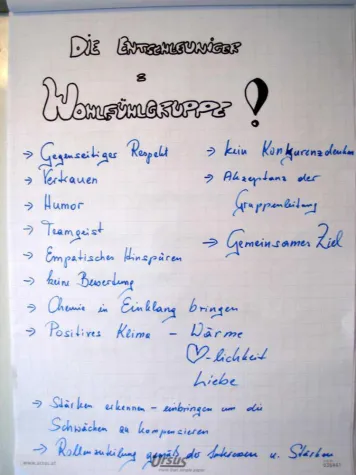 DIE ENTSCHLEUNIGER
&
WOHLFÜHLGRUPPE!
→ Gegenseitiges Respekt
→ Vertrauen
→ Humor
→ Teamgeist
→ Empatisches Hinspüren
→ keine Bewertung
→ Chemie in Einklang bringen
→ Positives Klima – Wärme
♡-lichkeit
Liebe
→ kein Konkurenzdenken
→ Akzeptanz der
Gruppenleitung
→ Gemeinsames Ziel
→ Stärken erkennen – einbringen um die
Schwächen zu kompensieren
→ Rollenzuteilung gemäß der Interessen u. Stärken
www.ursus.at
Ursus